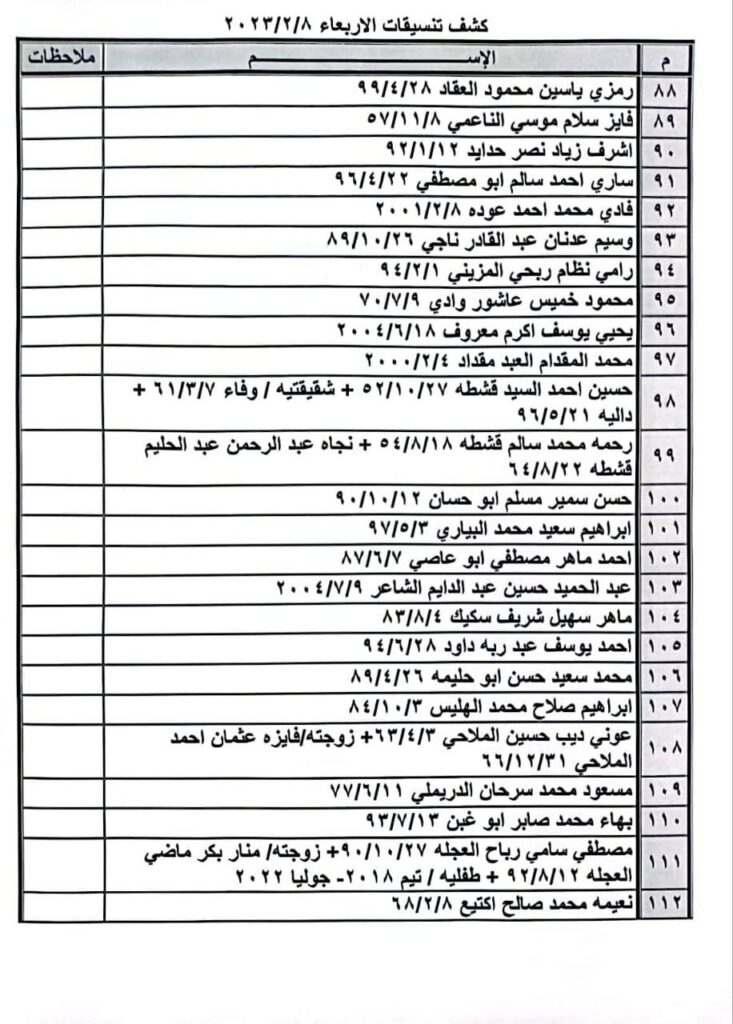 كشف تنسيقات الاربعاء ٢٠٢٣/٢/٨
م الإســـــــــــم ملاحظات
٨٨ رمزي ياسين محمود العقاد ٩٩/٤/٢٨
٨٩ فايز سلام موسي الناعمي ٥٧/١١/٨
٩٠ اشرف زياد نصر حدايد ٩٢/١/١٢
٩١ ساري احمد سالم ابو مصطفي ٩٦/٤/٢٢
٩٢ فادي محمد احمد عوده ٢٠٠١/٢/٨
٩٣ وسيم عدنان عبد القادر ناجي ٨٩/١٠/٢٦
٩٤ رامي نظام ربحي المزيني ٩٤/٢/١
٩٥ محمود خميس عاشور وادي ٧٠/٧/٩
٩٦ يحيي يوسف اكرم معروف ٢٠٠٤/٦/١٨
٩٧ محمد المقدام العبد مقداد ٢٠٠٠/٢/٤
٩٨ حسين احمد السيد قشطه ٥٢/١٠/٢٧ + شقيقتيه / وفاء ٦١/٣/٧ +
داليه ٩٦/٥/٢١
٩٩ رحمه محمد سالم قشطه ٥٤/٨/١٨ + نجاه عبد الرحمن عبد الحليم
قشطه ٦٤/٨/٢٢
١٠٠ حسن سمير مسلم ابو حسان ٩٠/١٠/١٢
١٠١ ابراهيم سعيد محمد البياري ٩٧/٥/٣
١٠٢ احمد ماهر مصطفي ابو عاصي ٨٧/٦/٧
١٠٣ عبد الحميد حسين عبد الدايم الشاعر ٢٠٠٤/٧/٩
١٠٤ ماهر سهيل شريف سكيك ٨٣/٨/٤
١٠٥ احمد يوسف عبد ربه داود ٩٤/٦/٢٨
١٠٦ محمد سعيد حسن ابو حليمه ٨٩/٤/٢٦
١٠٧ ابراهيم صلاح محمد الهليس ٨٤/١٠/٣
١٠٨ عوني ديب حسين الملاحي ٦٣/٤/٣+ زوجته/فايزه عثمان احمد
الملاحي ٦٦/١٢/٣١
١٠٩ مسعود محمد سرحان الدريملي ٧٧/٦/١١
١١٠ بهاء محمد صابر ابو غبن ٩٣/٧/١٣
١١١ مصطفي سامي رباح العجله ٩٠/١٠/٢٧+ زوجته/ منار بكر ماضي
العجله ٩٢/٨/١٢ + طفليه / تيم ٢٠١٨- جوليا ٢٠٢٢
١١٢ نعيمه محمد صالح اكتيع ٦٨/٢/٨